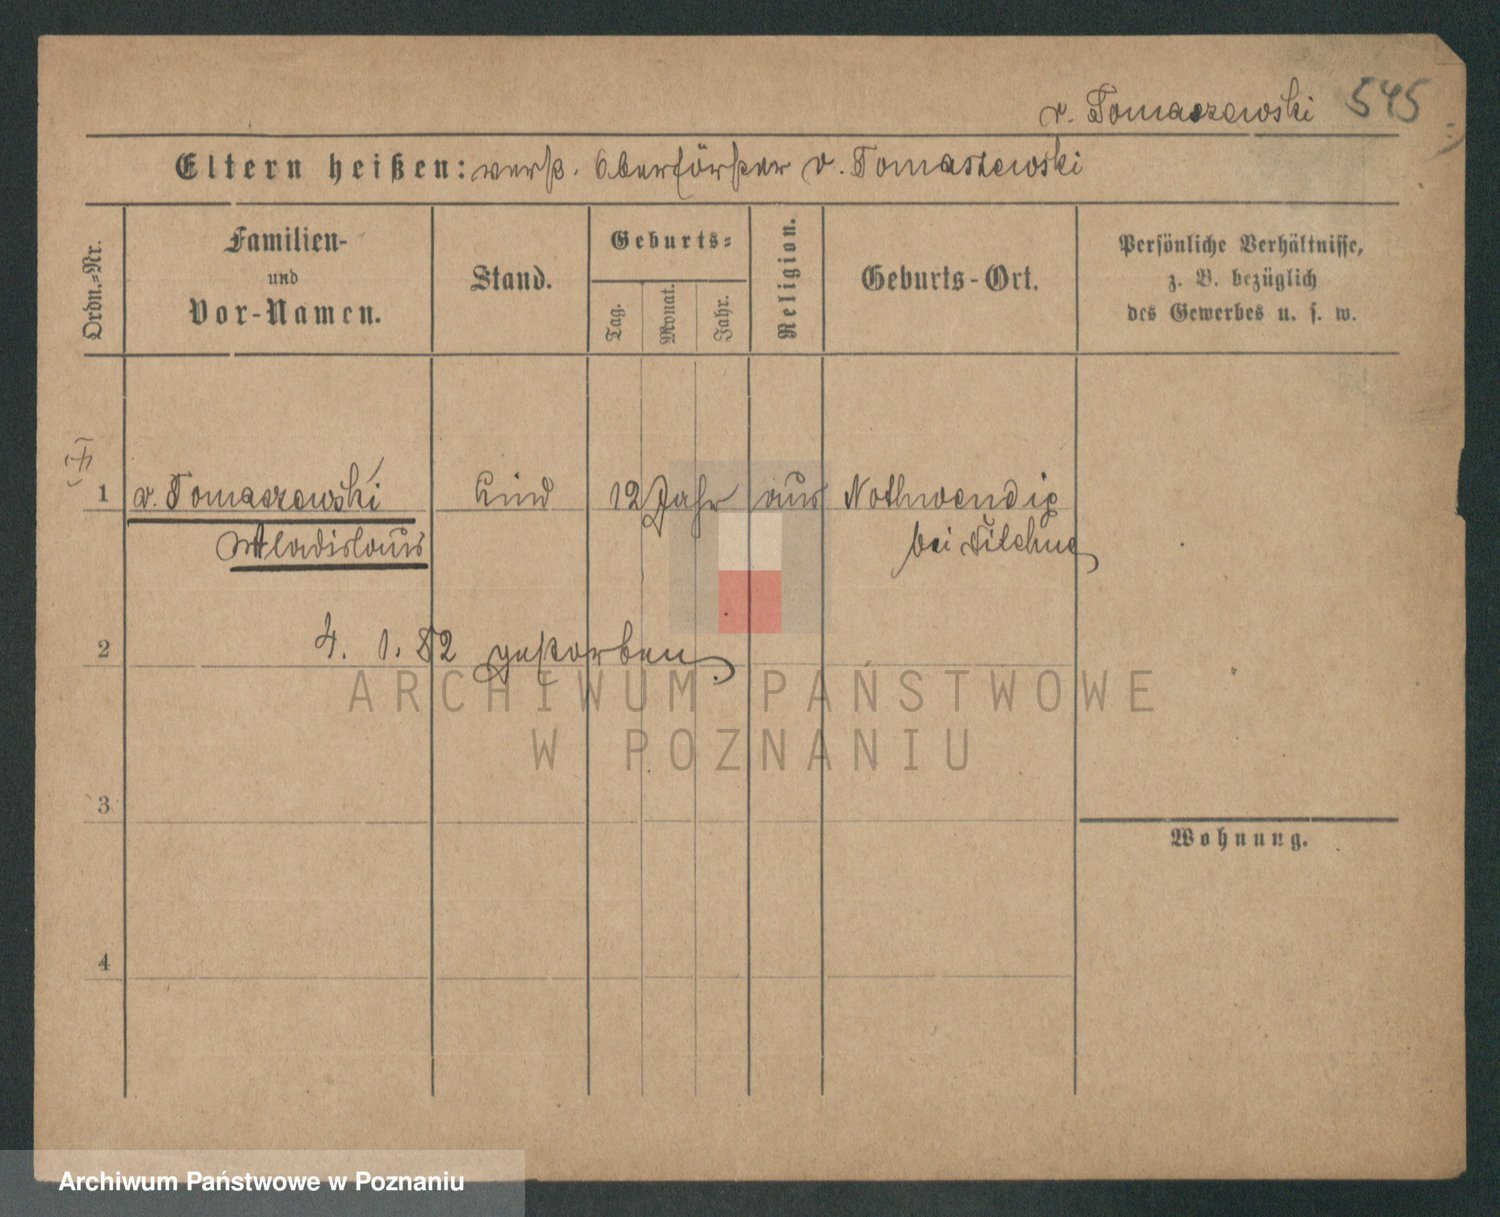 v. Tomaszewski 545
Eltern heißen: verst. Oberförster v. Tomaszewski
Ordn.-Nr.
Familien-
und
Vor-Namen.
Stand.
Geburts-
Tag.
Monat.
Jahr.
Religion.
Geburts-Ort.
Persönliche Verhältnisse,
z. B. bezüglich
des Gewerbes u. s. w.
1 v. Tomaszewski Kind 12 Jahr aus Nothwendig
Wladislaus bei Filehne
2 4. 1. 82 gestorben.
ARCHIWUM PAŃSTWOWE
W POZNANIU
3
Wohnung.
4
Archiwum Państwowe w Poznaniu